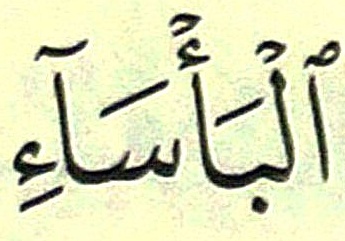 ٱلْبَأْسَآءِ